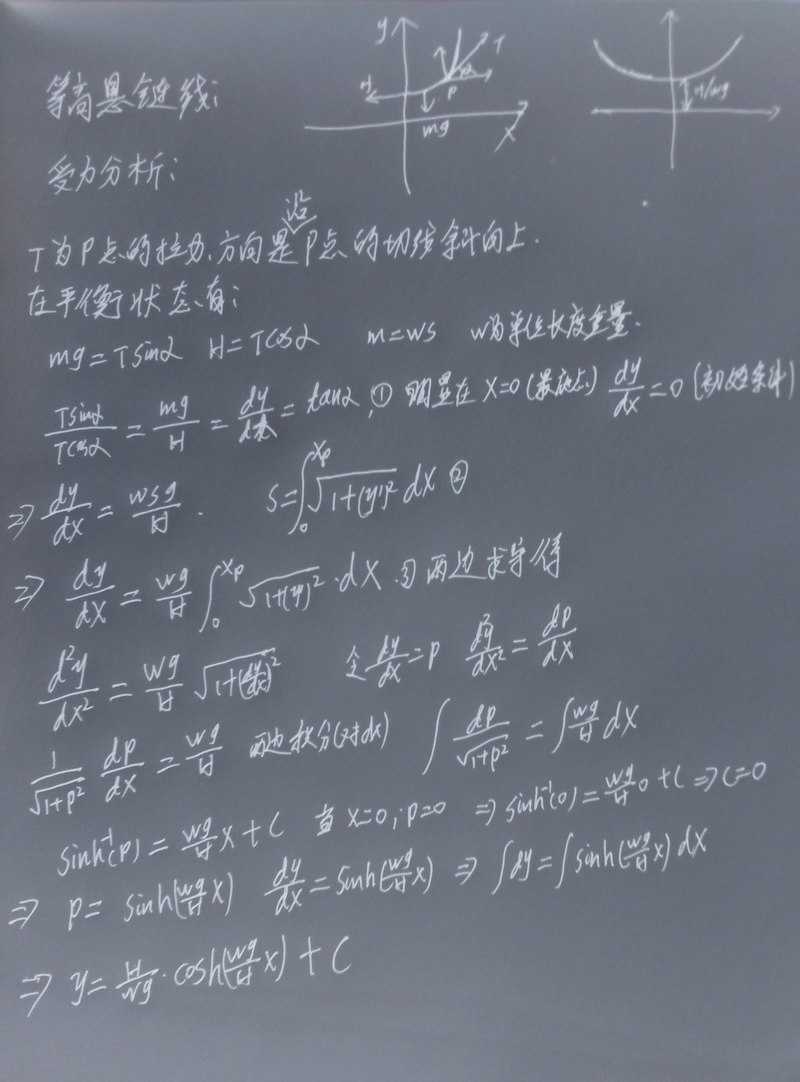 y T α H P mg X
H/mg
等高悬链线:
受力分析:
沿
T为P点的拉力,方向是P点的切线斜向上.
在平衡状态有:
mg=Tsinα H=Tcosα m=ws w为单位长度重量.
Tsinα/Tcosα = mg/H = dy/dx = tanα,① 明显在 X=0(最低点) dy/dx=0 (初始条件)
⇒ dy/dx = wsg/H . S=∫₀^{Xp} √(1+(y')²) dx ②
⇒ dy/dx = wg/H ∫₀^{Xp} √(1+(y')²)·dx ③ 两边求导得
d²y/dx² = wg/H √(1+(dy/dx)²) 令 dy/dx=p d²y/dx² = dp/dx
1/√(1+p²) dp/dx = wg/H 两边积分(对dx) ∫ dp/√(1+p²) = ∫ wg/H dx
sinh⁻¹(p) = wg/H x + C 当 x=0, p=0 ⇒ sinh⁻¹(0) = wg/H 0 + C ⇒ C=0
⇒ p = sinh(wg/H x) dy/dx = sinh(wg/H x) ⇒ ∫dy = ∫sinh(wg/H x) dx
⇒ y = H/wg · cosh(wg/H x) + C